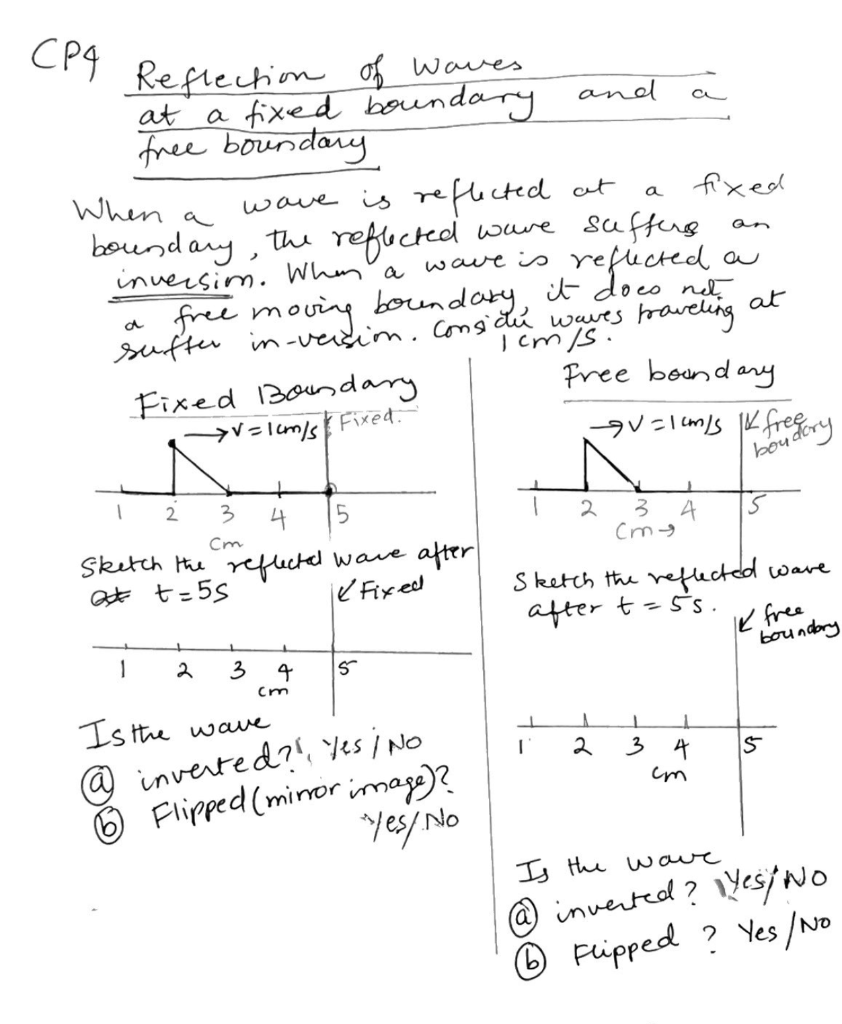 CP4 Reflection of waves
at a fixed boundary and a
free boundary
When a wave is reflected at a fixed
boundary, the reflected wave suffers an
inversion. When a wave is reflected a
a free moving boundary, it does not
suffer in-version. Consider waves traveling at
1 cm/s.
Fixed Boundary
→V = 1cm/s Fixed.
1 2 3 4 5
cm
Sketch the reflected wave after
at t = 5s
Fixed
1 2 3 4 5
cm
Is the wave
(a) inverted? Yes / No
(b) Flipped (mirror image)?
Yes/No
Free boundary
→V = 1 cm/s free
boundary
1 2 3 4 5
cm →
Sketch the reflected wave
after t = 5s.
free
boundary
1 2 3 4 5
cm
Is the wave
(a) inverted? Yes/No
(b) Flipped ? Yes /No